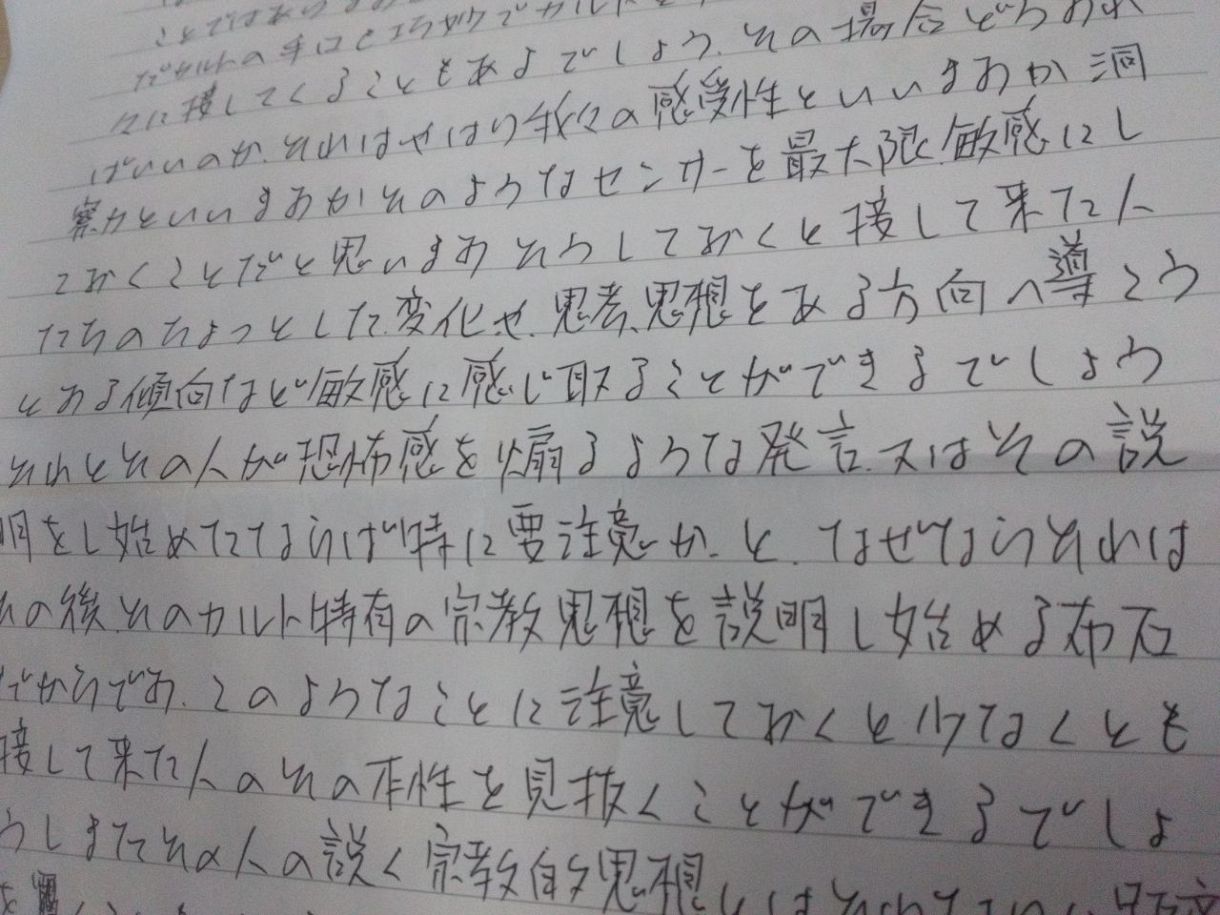 ことではあり
カルトの手口と巧妙でカルトと
々に接してくることもあるでしょう、その場合どうすれ
ばいいのか、それはやはり我々の感受性といいますか洞
察力といいますかそのようなセンサーを最大限、敏感にし
ておくことだと思いますそうしておくと接して来た人
たちのちょっとした変化や、思考、思想をある方向へ導こう
とする傾向など敏感に感じ取ることができるでしょう
それとその人が恐怖感を煽るような発言、又はその説
明をし始めたならば特に要注意か、と、なぜならそれは
その後、そのカルト特有の宗教思想を説明し始める布石
だからです、このようなことに注意しておくと少なくとも
接して来た人のその本性を見抜くことができるでしょ
うしまたその人の説く宗教的思想